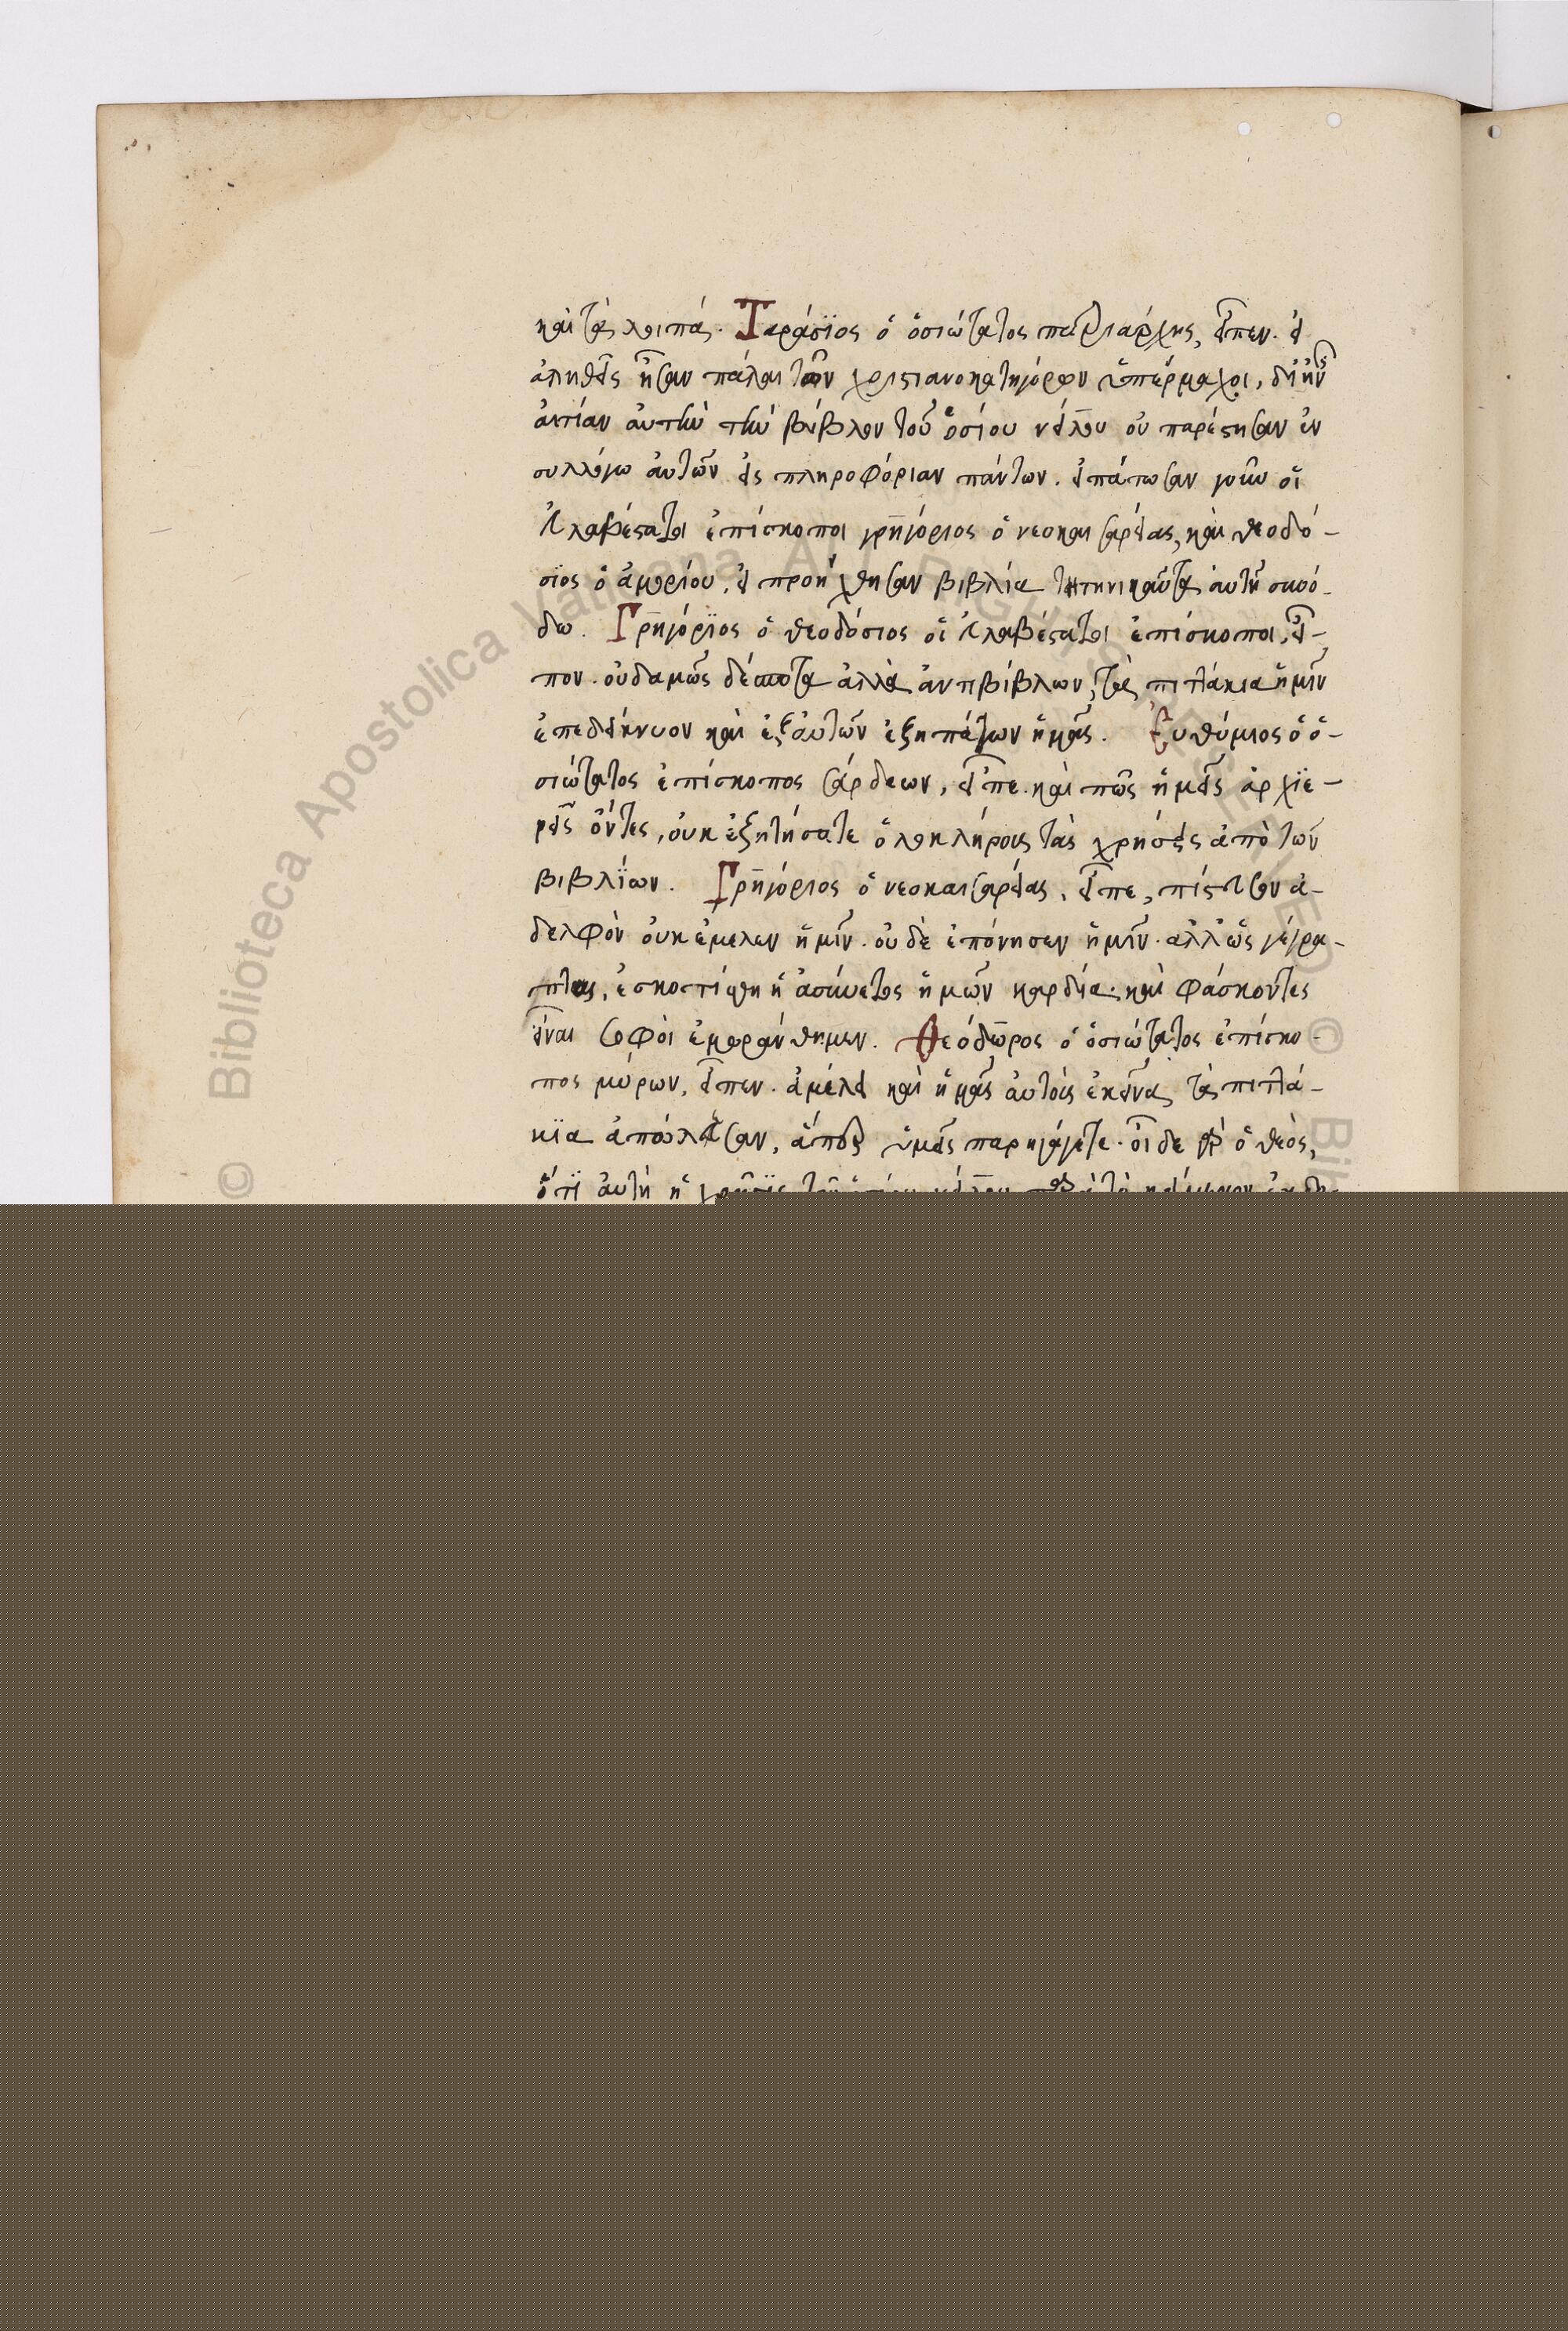 καὶ τὰ λοιπά. Ταράσϊος ὁ ὁσιώτατος πατριάρχης, εἶπεν. εἰ
ἀληθεῖς ἦσαν πάλαι τῶν χριστιανοκατηγόρων ὑπέρμαχοι, δι ἣν
ἀιτίαν ἀυτὴν τὴν βίβλον τοῦ ὁσίου νείλου οὐ παρέστησαν ἐν
συλλόγω ἀυτῶν εἰς πληροφόριαν πάντων. εἰπάτωσαν γοῦν οἱ
ἐυλαβέστατοι ἐπίσκοποι γρηγόριος ὁ νεοκαισαρείας, καὶ θεοδό-
σϊος ὁ ἀμορίου, εἰ προήχθησαν βιβλία τηνικαῦτα ἀυτῆ συνό-
δω. Γρηγόρϊος ὁ θεοδόσιος οἱ ἐυλαβέστατοι ἐπίσκοποι, εἶ-
πον. οὐδαμῶς δέσποτα ἀλλὰ ἀντιβίβλων, τὰ πιττάκια ἡμῖν
ἐπεδείκνυον καὶ ἐξ ἀυτῶν ἐξηπάτων ἡμᾶς. Ἐυθύμιος ὁ ὁ-
σιώτατος ἐπίσκοπος σάρδεων, εἶπε. καὶ πῶς ἡμεῖς ἀρχϊε-
ρεῖς ὄντες, ὀυκ ἐξητήσατε ὁλοκλήρους τὰς χρήσεις ἀπὸ τῶν
βιβλΐων. Γρηγόριος ὁ νεοκαισαρείας, εἶπε, πίστευσον ἀ-
δελφὸν ὀυκ ἐμελεν ἡμῖν. οὐδὲ ἐπόνησεν ἡμῖν. αλλ ὡς γέγρα-
πται, ἐσκοτίσθη ἡ ἀσύνετος ἡμῶν καρδία. καὶ φάσκοντες
εἶναι σοφὸι ἐμωράνθημεν. Θεόδωρος ὁ ὁσιώτατος ἐπίσκο-
πος μύρων, εἶπεν. ἀμέλει καὶ ἡμᾶς ἀυτὸις ἐκεῖνα τὰ πιττά-
κϊα ἀπώλεσαν, ἅπερ ὑμεῖς παρηγάγετε. οἶδε γὰρ ὁ θεὸς,
ὅτϊ ἀυτὴ ἡ χρῆσϊς τοῦ ὁσίου νείλου